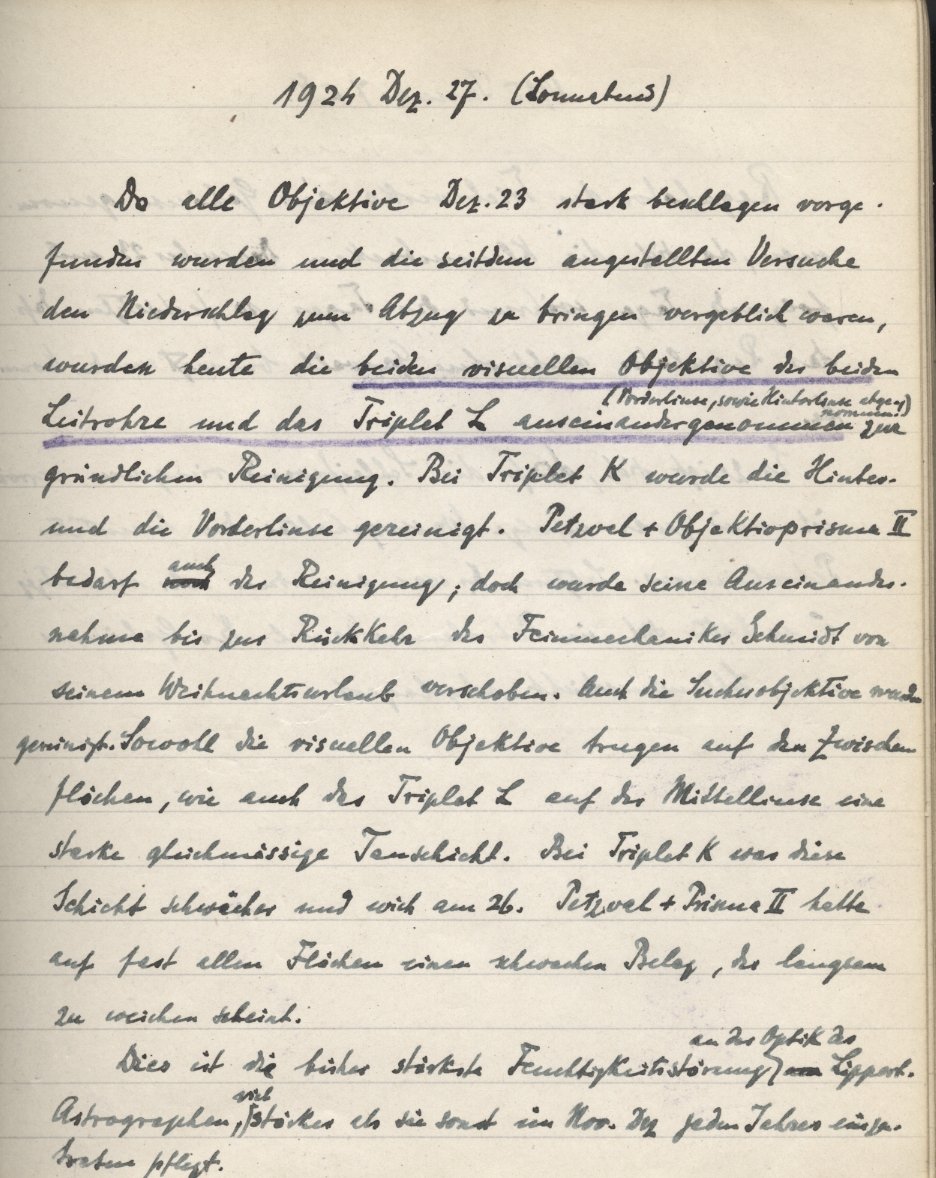 1924 Dez. 27. (Sonnabend)
Da alle Objektive Dez. 23 stark beschlagen vorge-
funden wurden und die seitdem angestellten Versuche
den Niederschlag zum Abzug zu bringen vergeblich waren,
wurden heute die beiden visuellen Objektive der beiden
(Vorderlinse, sowie Hinterlinse abgenommen)
Leitrohre und das Triplet L auseinandergenommen zur
gründlichen Reinigung. Bei Triplet K wurde die Hinter-
und die Vorderlinse gereinigt. Petzval + Objektivprisma II
auch
bedarf der Reinigung; doch wurde seine Auseinander-
nahme bis zur Rückkehr des Feinmechanikers Schmidt von
seinem Weihnachtsurlaub verschoben. Auch die Sucherobjektive wurden
gereinigt. Sowohl die visuellen Objektive trugen auf den Zwischen
flächen, wie auch das Triplet L auf der Mittellinse eine
starke gleichmässige Tauschicht. Bei Triplet K war diese
Schicht schwächer und wich am 26. Petzval + Prisma II hatte
auf fast allen Flächen einen schwachen Belag, der langsam
zu weichen scheint.
an der Optik des
Dies ist die bisher stärkste Feuchtigkeitsstörung Lippert-
viel
Astrographen, stärker als sie sonst im Nov. Dez jeden Jahres einzu-
treten pflegt.